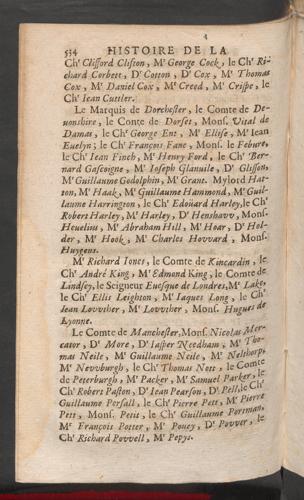 534 HISTOIRE DE LA
Chr Clifford Clifton, Mr George Cock, le Chr Ri-
chard Corbett, Dr Cotton, Dr Cox, Mr Thomas
Cox, Mr Daniel Cox, Mr Creed, Mr Crispe, le
Chr Iean Cuttler.
Le Marquis de Dorchester, le Comte de De-
uonshire, le Conte de Dorset, Mons. Vital de
Damas, le Chr George Ent, Mr Ellise, Mr Iean
Euelyn; le Chr François Fane, Mons. le Febure,
le Chr Iean Finch, Mr Henry Ford, le Chr Ber-
nard Gascoigne, Mr Ioseph Glanuile, Dr Glisson,
Mr Guillaume Godolphin, Mr Grant. Mylord Hat-
ton, Mr Haak, Mr Guillaume Hammond, Mr Guil-
laume Harrington, le Chr Edoüard Harley, le Chr
Robert Harley, Mr Harley, Dr Henshavv, Mons.
Heuelius, Mr Abraham Hill, Mr Hoar, Dr Hol-
der, Mr Hook, Mr Charles Hovvard, Mons.
Huygens.
Mr Richard Iones, le Comte de Kincardin, le
Chr André King, Mr Edmond King, le Comte de
Lindsey, le Seigneur Euesque de Londres, Mr Lake,
le Chr Ellis Leighton, Mr Iaques Long, le Chr
Iean Lovvther, Mr Lovvther, Mons. Hugues de
Lyonne.
Le Comte de Manchester, Mons. Nicolas Mer-
cator, Dr More, Dr Iasper Needham, Mr Tho-
mas Neile, Mr Guillaume Neile, Mr Nelthorp,
Mr Nevvburgh, le Chr Thomas Nott, le Comte
de Peterburgh, Mr Packer, Mr Samuel Parker, le
Chr Robert Paston, Dr Iean Pearson, Dr Pell, le Chr
Guillaume Persall, le Chr Pierre Pett, Mr Pierre
Pett, Mons. Petit, le Chr Guillaume Portman,
Mr François Potter, Mr Pouey, Dr Povver, le
Chr Richard Povvell, Mr Pepys.